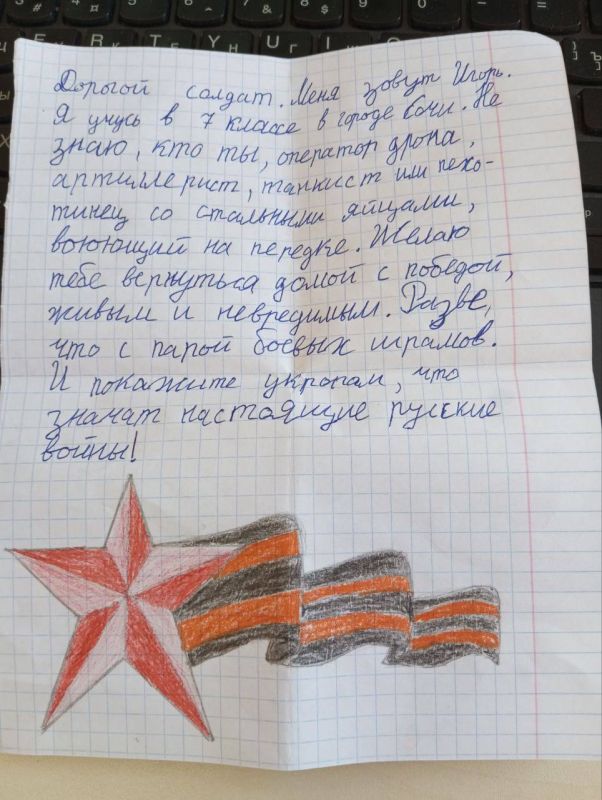 Дорогой солдат. Меня зовут Игорь.
Я учусь в 7 классе в городе Сочи. Не
знаю, кто ты, оператор дрона,
артиллерист, танкист или пехо-
тинец со стальными яйцами,
воюющий на передке. Желаю
тебе вернуться домой с победой,
живым и невредимым. Разве,
что с парой боевых шрамов.
И покажите укропам, что
значат настоящие русские
войны!